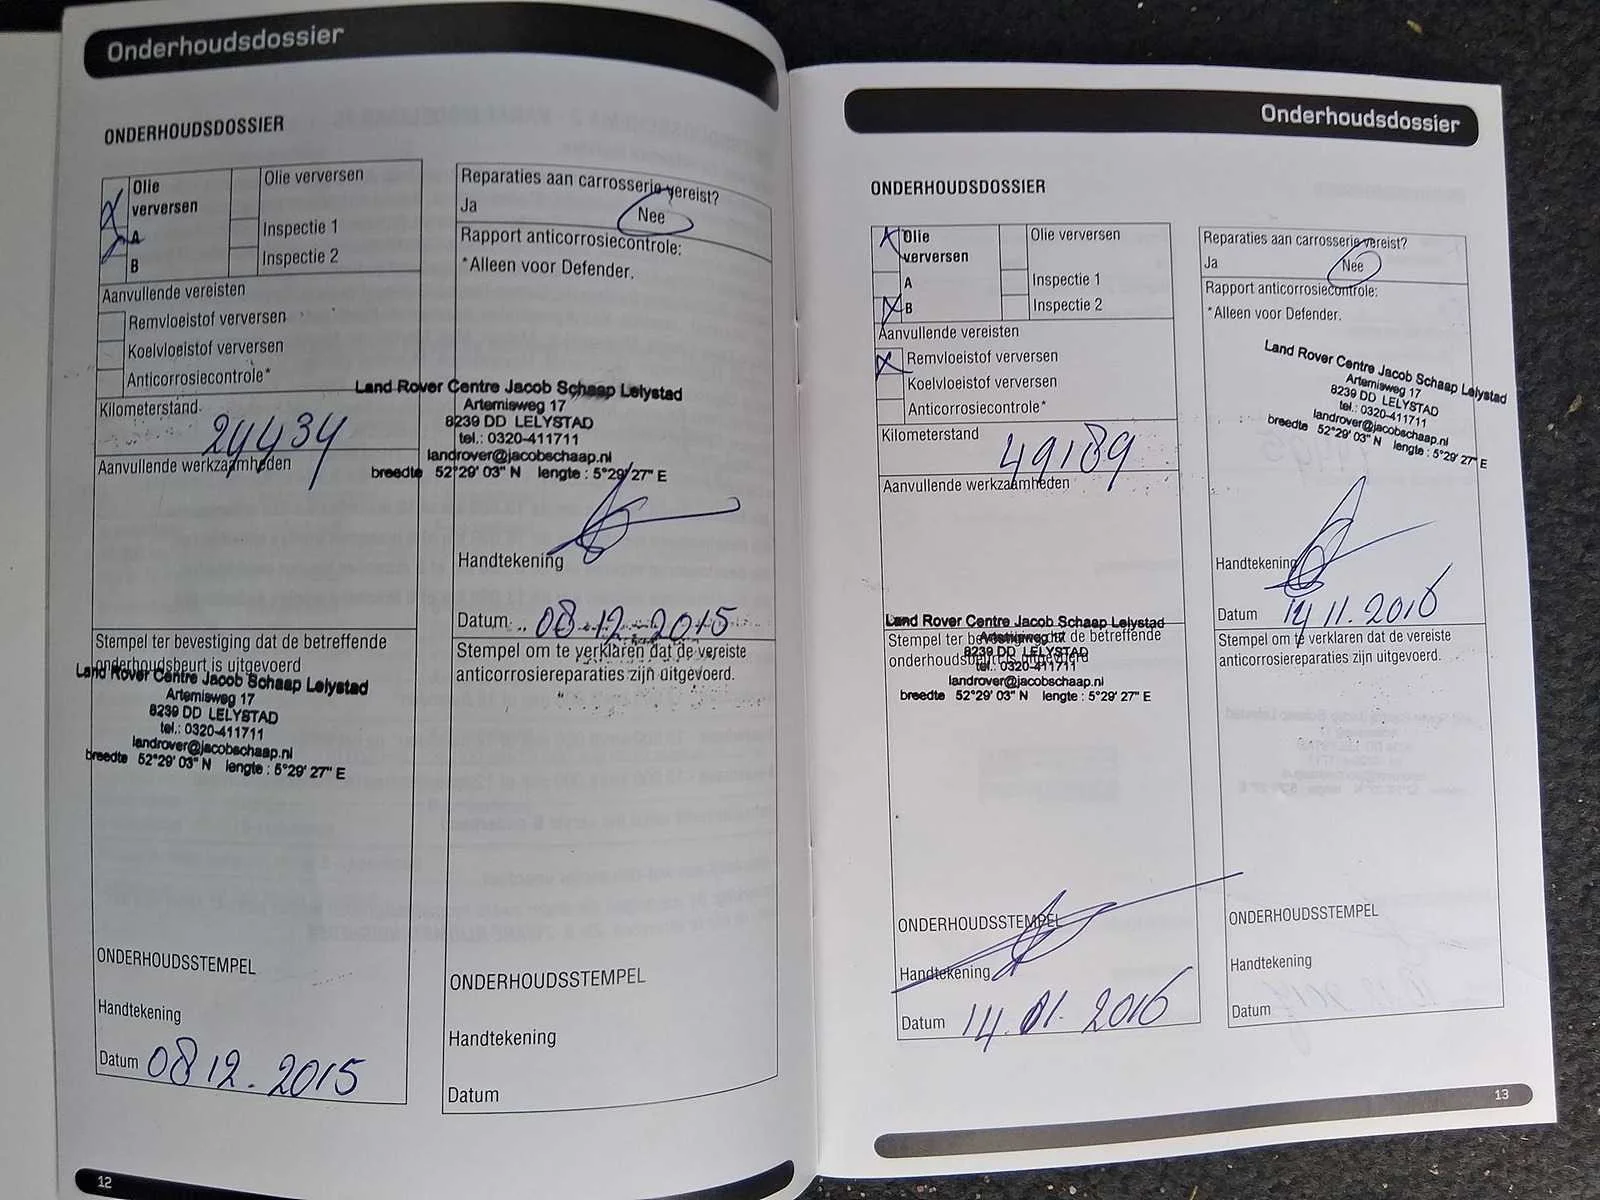 Onderhoudsdossier
ONDERHOUDSDOSSIER
Olie verversen
A
B
Olie verversen
Inspectie 1
Inspectie 2
Aanvullende vereisten
Remvloeistof verversen
Koelvloeistof verversen
Anticorrosiecontrole*
Kilometerstand
24434
Aanvullende werkzaamheden
Stempel ter bevestiging dat de betreffende
onderhoudsbeurt is uitgevoerd
Land Rover Centre Jacob Schaap Lelystad
Artemisweg 17
8239 DD LELYSTAD
tel.: 0320-411711
landrover@jacobschaap.nl
breedte 52°29' 03" N lengte : 5°29' 27" E
ONDERHOUDSSTEMPEL
Handtekening
Datum 08 12. 2015
Reparaties aan carrosserie vereist?
Ja Nee
Rapport anticorrosiecontrole:
*Alleen voor Defender.
Land Rover Centre Jacob Schaap Lelystad
Artemisweg 17
8239 DD LELYSTAD
tel.: 0320-411711
landrover@jacobschaap.nl
breedte 52°29' 03" N lengte : 5°29' 27" E
Handtekening
Datum 08-12-2015
Stempel om te verklaren dat de vereiste
anticorrosiereparaties zijn uitgevoerd.
ONDERHOUDSSTEMPEL
Handtekening
Datum
12
Onderhoudsdossier
ONDERHOUDSDOSSIER
Olie verversen
A
B
Olie verversen
Inspectie 1
Inspectie 2
Aanvullende vereisten
Remvloeistof verversen
Koelvloeistof verversen
Anticorrosiecontrole*
Kilometerstand
49189
Aanvullende werkzaamheden
Land Rover Centre Jacob Schaap Lelystad
Stempel ter bevestiging dat de betreffende
Artemisweg 17
8239 DD LELYSTAD
onderhoudsbeurt is uitgevoerd
tel.: 0320-411711
landrover@jacobschaap.nl
breedte 52°29' 03" N lengte : 5°29' 27" E
ONDERHOUDSSTEMPEL
Handtekening
Datum 14.01.2016
Reparaties aan carrosserie vereist?
Ja Nee
Rapport anticorrosiecontrole:
*Alleen voor Defender.
Land Rover Centre Jacob Schaap Lelystad
Artemisweg 17
8239 DD LELYSTAD
tel.: 0320-411711
landrover@jacobschaap.nl
breedte 52°29' 03" N lengte : 5°29' 27" E
Handtekening
Datum 14 11. 2016
Stempel om te verklaren dat de vereiste
anticorrosiereparaties zijn uitgevoerd.
ONDERHOUDSSTEMPEL
Handtekening
Datum
13